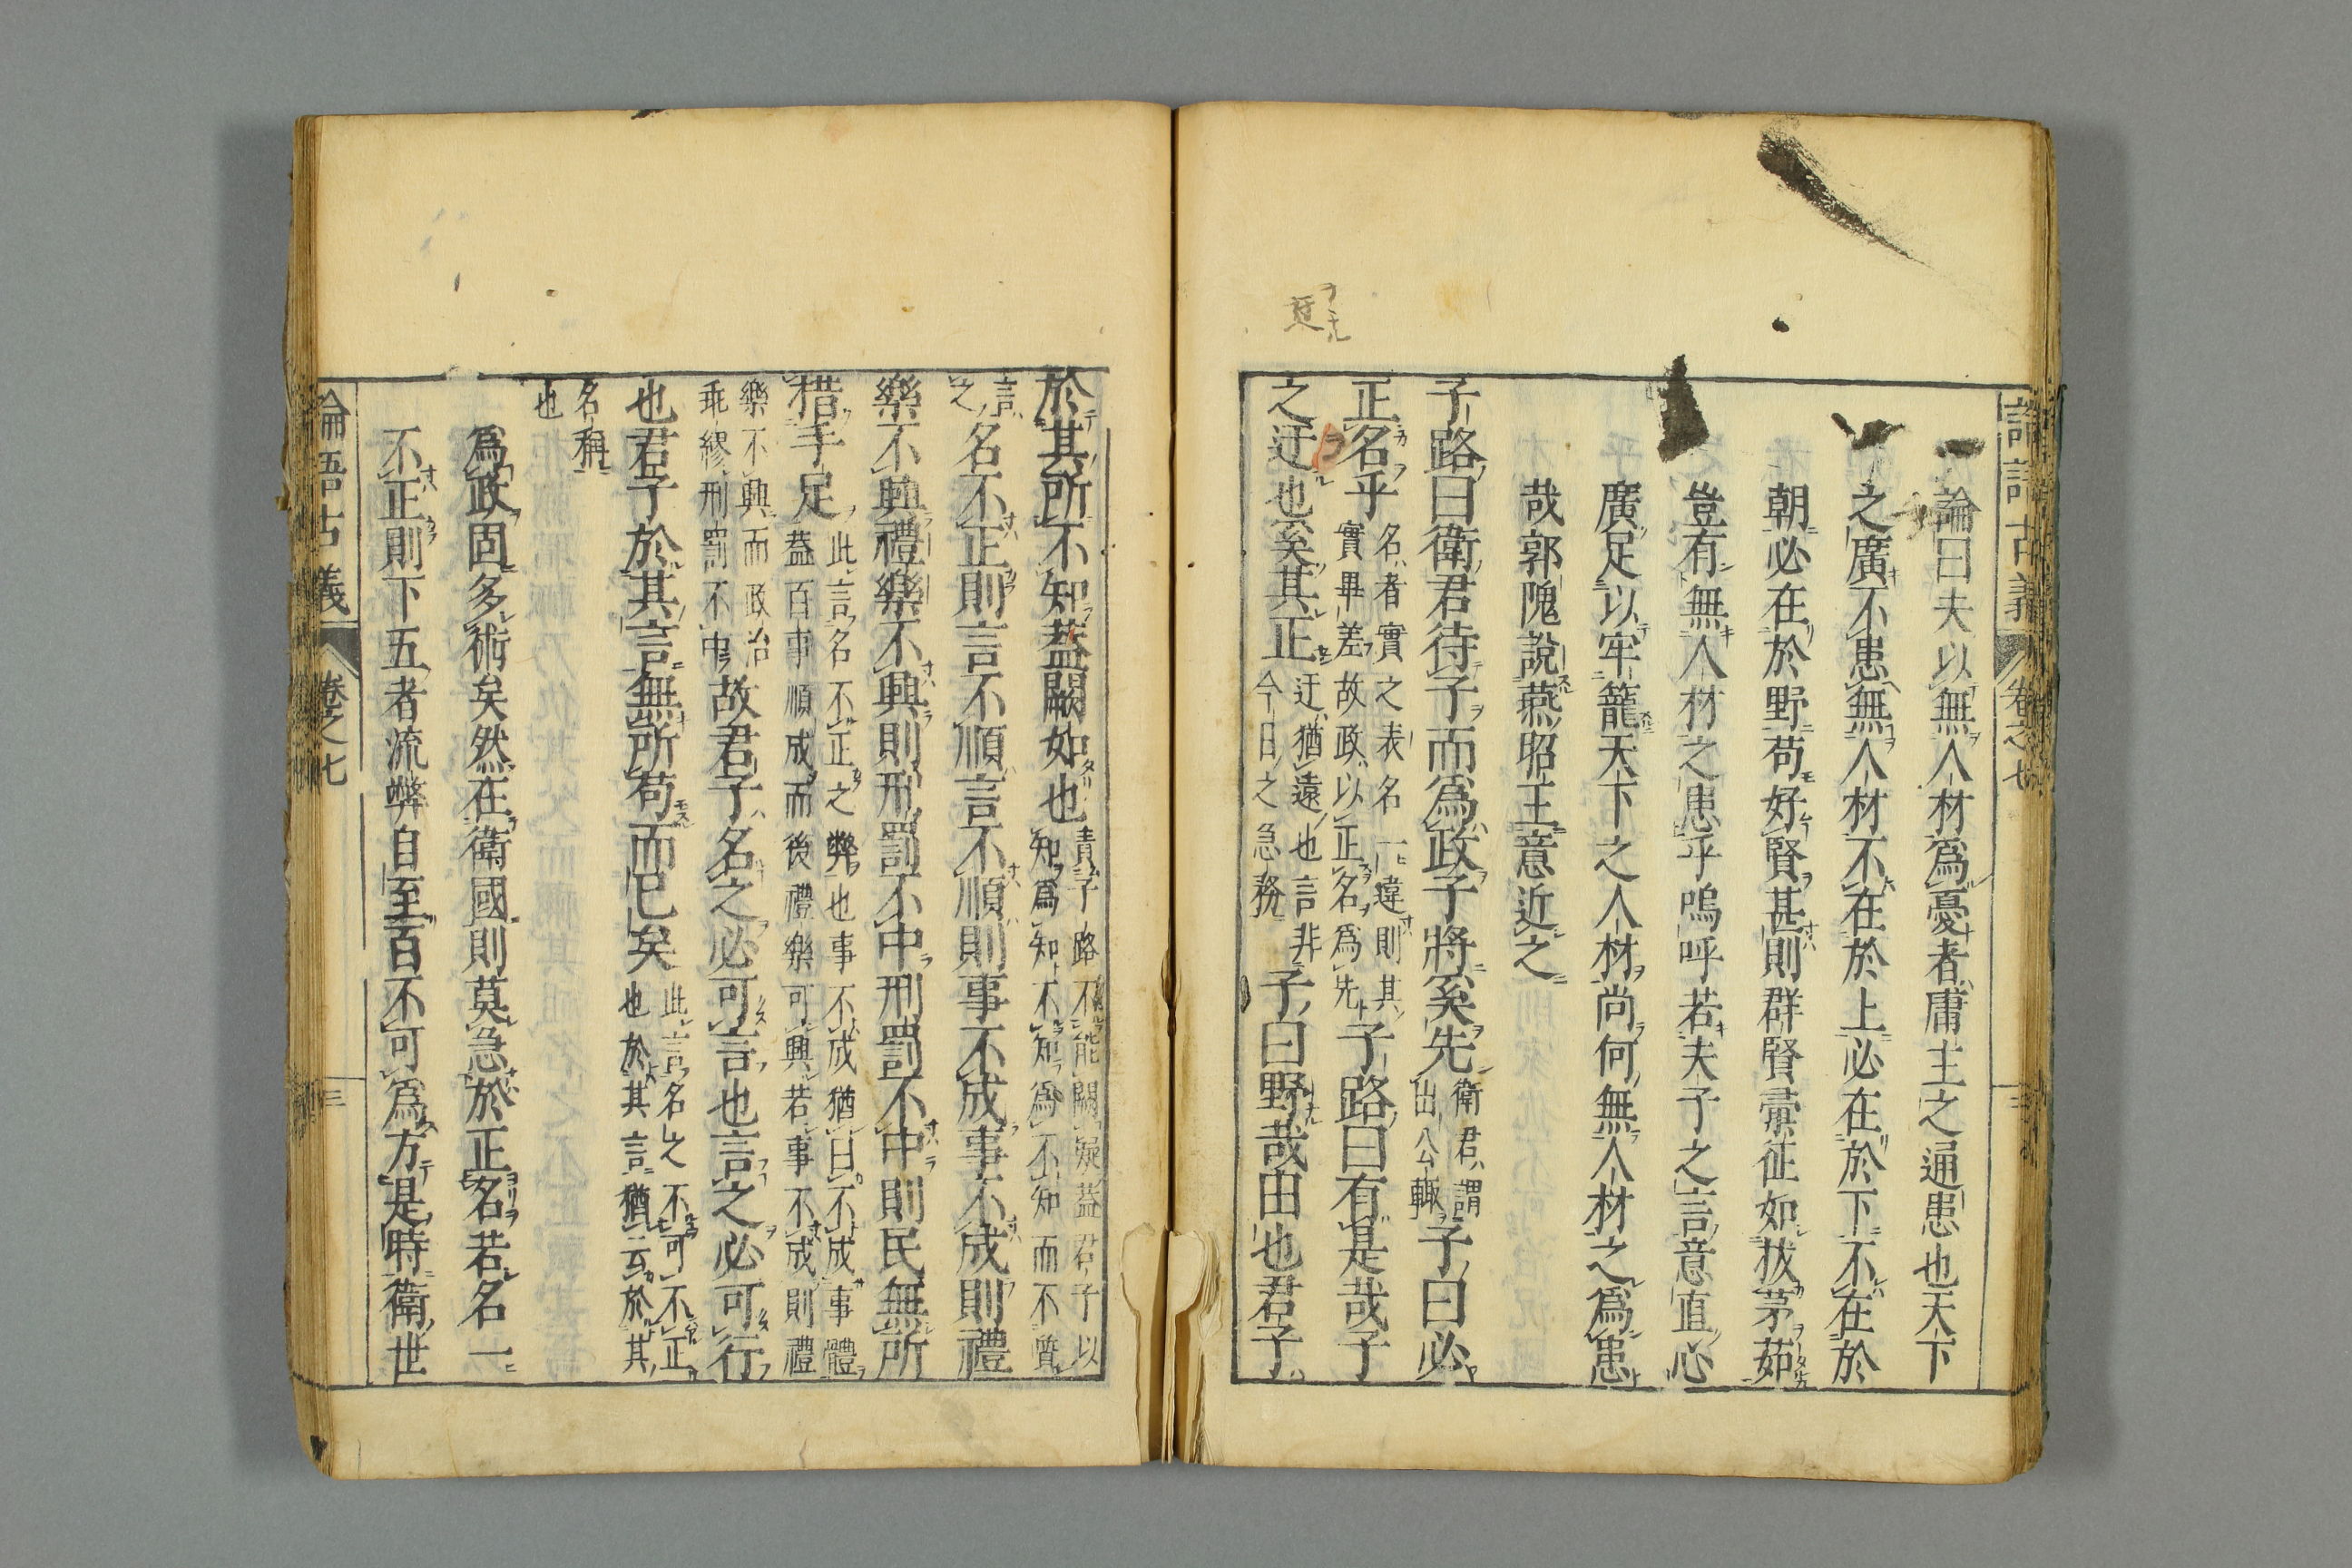 論語古義 卷之七
論曰夫以無人材爲憂者庸主之通患也天下
之廣不患無人材不在於上必在於下不在於
朝必在於野苟好賢甚則群賢彚征如拔茅茹
豈有無人材之患乎嗚呼若夫子之言意直心
廣足以牢籠天下之人材尚何無人材之爲患
哉郭隗說燕昭王意近之
子路曰衛君待子而爲政子將奚先
衛君謂
出公輒
子曰必
正名乎
名者實之表名一違則其
實畢差故政以正名爲先
子路曰有是哉子
之迂也奚其正
迂猶遠也言非
今日之急務
子曰野哉由也君子
於其所不知蓋闕如也
責子路不能闕疑蓋君子以
知爲知不知爲不知而不質
言
之
名不正則言不順言不順則事不成事不成則禮
樂不興禮樂不興則刑罰不中刑罰不中則民無所
措手足
此言名不正之弊也事不成猶曰不成事體
蓋百事順成而後禮樂可興若事不成則禮
樂不興而政治
乖繆刑罰不中
故君子名之必可言也言之必可行
也君子於其言無所苟而已矣
此言名之不可不正
也於其言猶云於其
名稱
也
爲政固多術矣然在衛國則莫急於正名若名一
不正則下五者流弊自至百不可爲方是時衛世
論語古義 卷之七 三